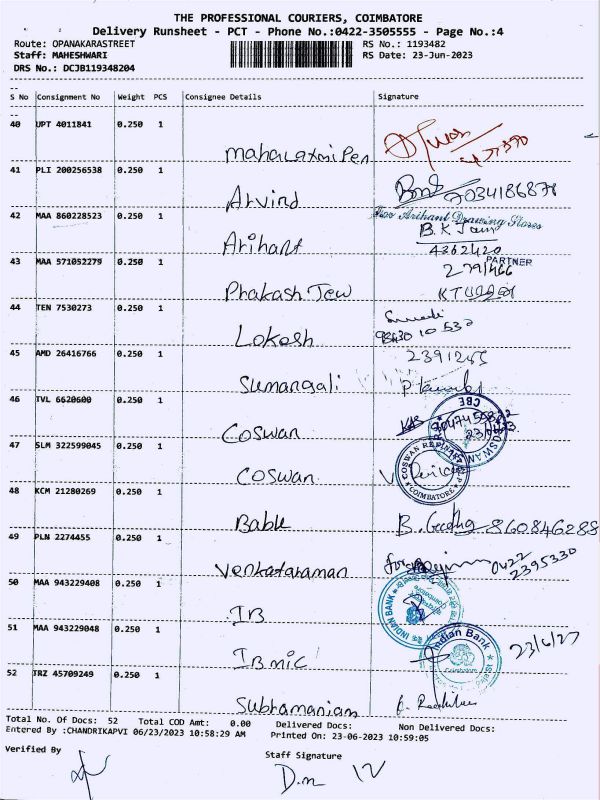 THE PROFESSIONAL COURIERS, COIMBATORE
Delivery Runsheet - PCT - Phone No.:0422-3505555 - Page No.:4
Route: OPANAKARASTREET RS No.: 1193482
Staff: MAHESHWARI RS Date: 23-Jun-2023
DRS No.: DCJB119348204
S No Consignment No Weight PCS Consignee Details Signature
40 UPT 4011841 0.250 1
Mahalaxmi Pen
41 PLI 200256538 0.250 1
Arvind
42 MAA 860228523 0.250 1
Arihant B.K Jain
4362420
43 MAA 571052279 0.250 1 PARTNER
Phakash Jew
44 TEN 7530273 0.250 1
Lokesh
45 AMD 26416766 0.250 1
Sumangali
46 TVL 6620600 0.250 1
Coswan
47 SLM 322599045 0.250 1
Coswan
COIMBATORE
48 KCM 21280269 0.250 1
Bable
49 PLN 2274455 0.250 1
Venkataraman 0422
2395330
50 MAA 943229408 0.250 1
IB
INDIAN BANK
51 MAA 943229048 0.250 1
IB mic
Indian Bank
52 TRZ 45709249 0.250 1
Subramaniam
Total No. Of Docs: 52 Total COD Amt: 0.00 Delivered Docs: Non Delivered Docs:
Entered By :CHANDRIKAPVI 06/23/2023 10:58:29 AM Printed On: 23-06-2023 10:59:05
Verified By Staff Signature